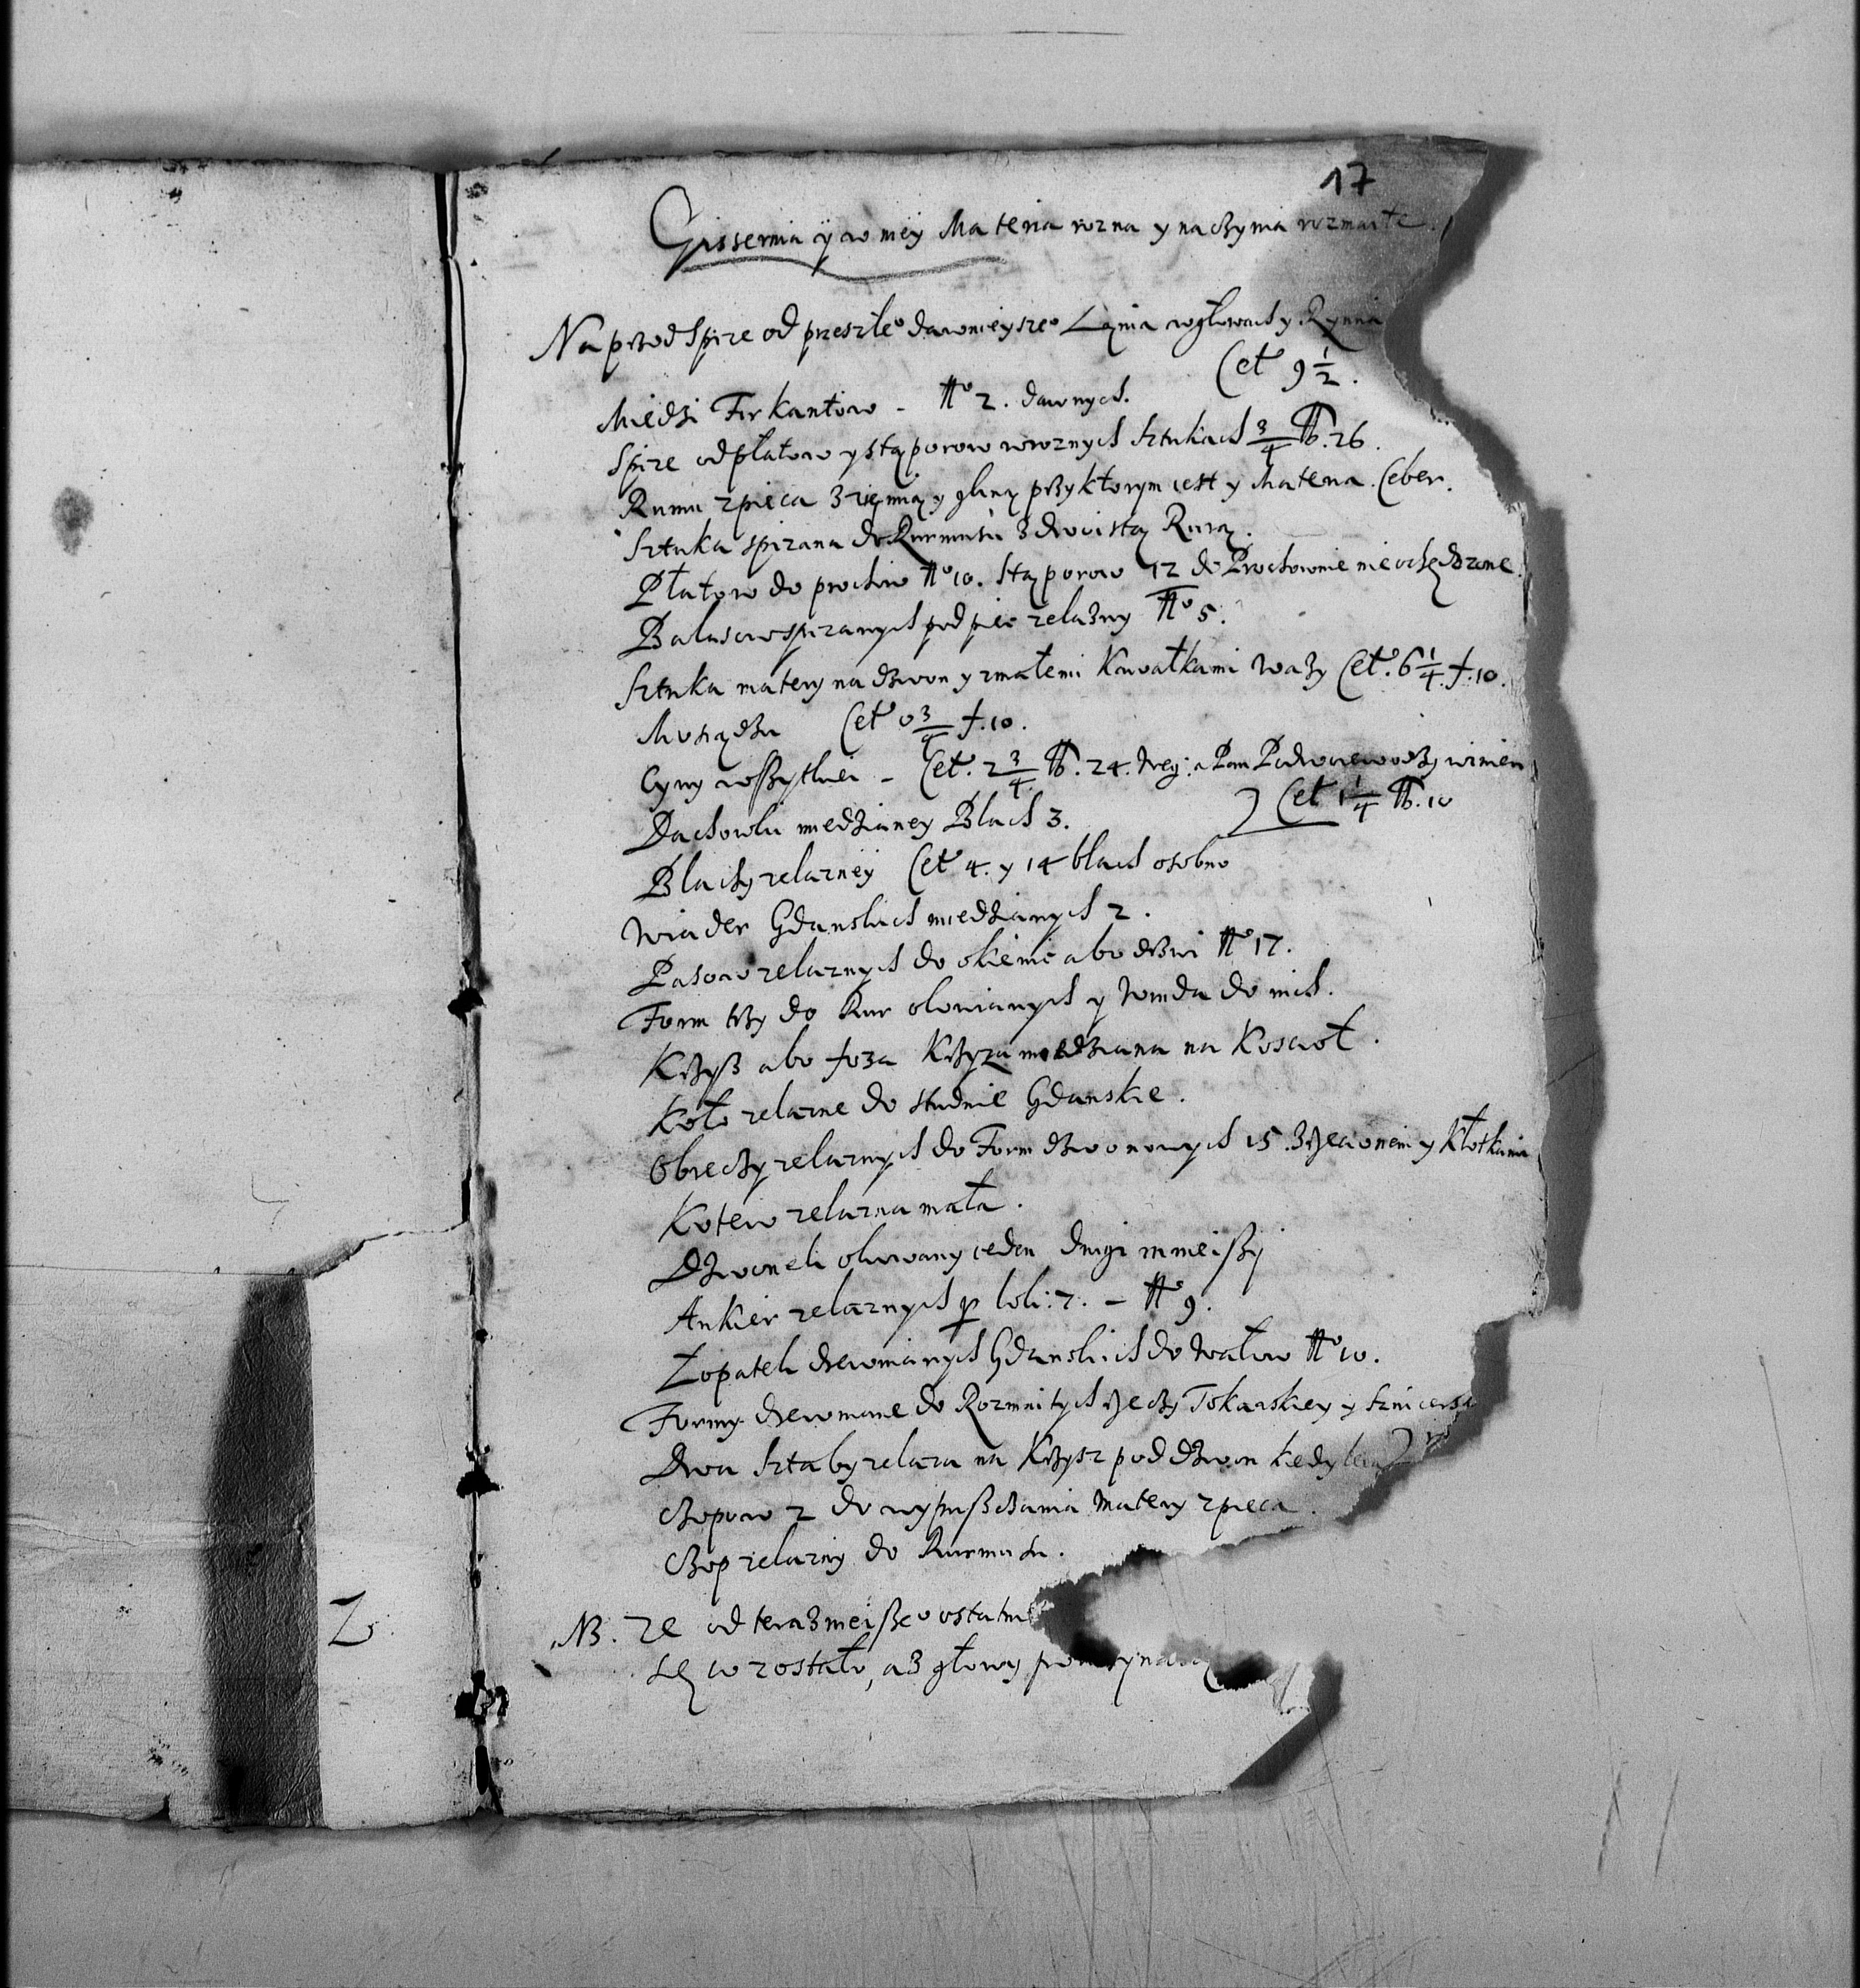 17
Gissernia y w niey Materia rozna y naczynia rozmaite.
Naprzod Spize od przeszłeo dawnieyszeo Lania w głowach y Rynna
Cetº 9 1/2.
Miedzi Firkantow - Nº 2. dawnych.
Spize od płatow y stąporow w roznych sztukach 3/4 ℔. 26.
Rumu z pieca z ziemią y gliną przy ktorym iest y Materia. Ceber.
Sztuka spizana do Rurmusu z dwoistą Rurą.
Płatow do prochow Nº 10. Stąporow 12 do Prochownie nie ochędozone.
Balasow spizanych pod piec zelazny Nº 5.
Sztuka matery na dzwon y z małemi Kawałkami wazy Cetº. 6 1/4 f. 10.
Mosiądzu Cetº 0 3/4 f. 10.
Cyny wszytkiei - Cet. 2 3/4 ℔. 24. a Pan Podwoiewodzy winien
Cet 1 1/4 ℔. 10
Dachowki miedzianey Blach 3.
Blachy zelazney Cetº 4. y 14 blach osobno
Wiader Gdanskich miedzianych 2.
Pasow zelaznych do okienic abo drzwi Nº 17.
Form trzy do Rur ołowianych y Winda do nich.
Krzyż abo foza Krzyza miedziana na Koscioł.
Koło zelazne do studnie Gdanskie.
Obreczy zelaznych do Form dzwonowych 15. y Kłotkami
Kotew zelazna mała.
Dzwonek ołowany ieden drugi mnieiszy
Ankier zelaznych ꝑ lok: 7. - Nº 9.
Łopatek drewnianych Gdanskich do wałow Nº 10.
Formy drewniane do Rozmaitych rzeczy Tokarskiey y
Dwa sztaby zelaza na Krzysz pod dzwon kiedy
Czopow 2 do wypuszczania matery z pieca.
Czop zelazny do Rurmusu.
NB. ze od teraznieiszeo
się co zostało, a z głowy